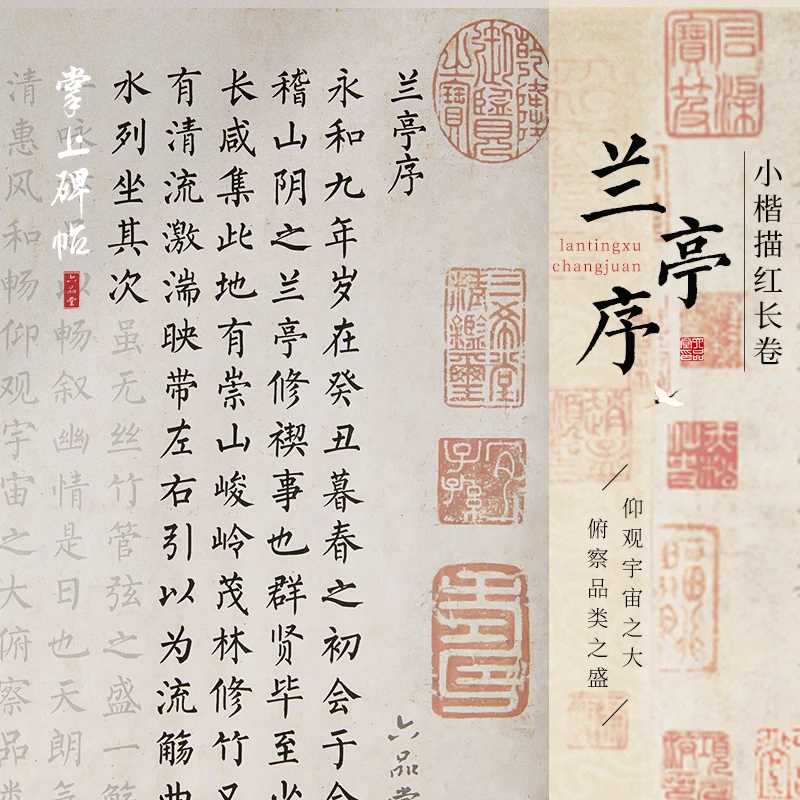 小楷描红长卷
兰亭序
lantingxu
changjuan
仰观宇宙之大
俯察品类之盛
乾隆御覽之寶
三希堂精鑑璽
宜子孫
兰亭序
永和九年岁在癸丑暮春之初会于会
稽山阴之兰亭修禊事也群贤毕至少
长咸集此地有崇山峻岭茂林修竹又
有清流激湍映带左右引以为流觞曲
水列坐其次虽无丝竹管弦之盛一觞
咏以畅叙幽情是日也天朗气
清惠风和畅仰观宇宙之大俯察品类
掌上碑帖
六品堂
六品堂